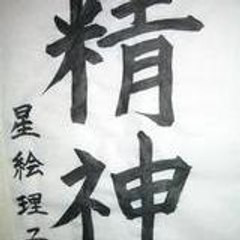 精神
星絵理子